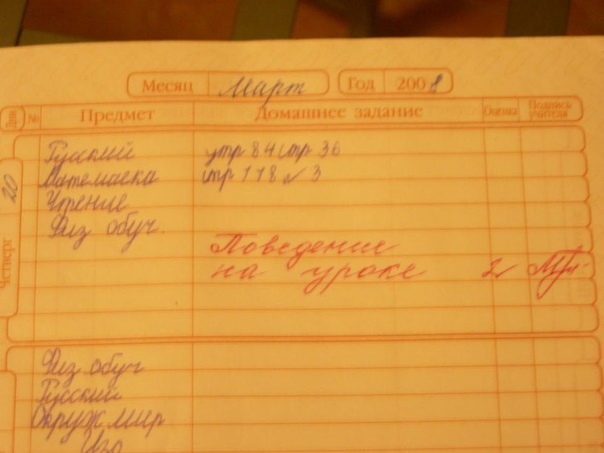 Месяц Март Год 2008
День № Предмет Домашнее задание Оценка Подпись учителя
20 Четверг
Русский упр 84 стр 36
Матемаска стр 118 № 3
Чтение
Физ обуч.
Поведение
на уроке 2
Физ обуч
Русский
Окруж мир
Изо